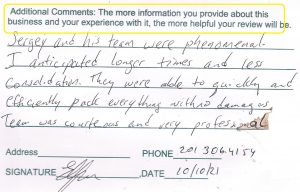 Additional Comments: The more information you provide about this
business and your experience with it, the more helpful your review will be.
Sergey and his team were phenomenal.
I anticipated longer times and less
consolidation. They were able to quickly and
efficiently pack everything with no damages
Team was courteous and very professional
Address PHONE 201 306 4154
SIGNATURE DATE 10/10/21